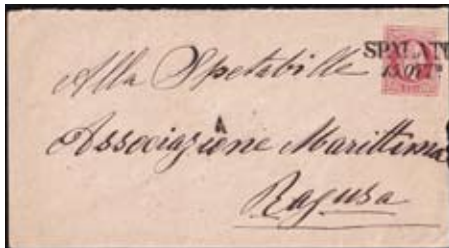 SPALATO
Alla Spetabille
Associazione Marittima
Ragusa